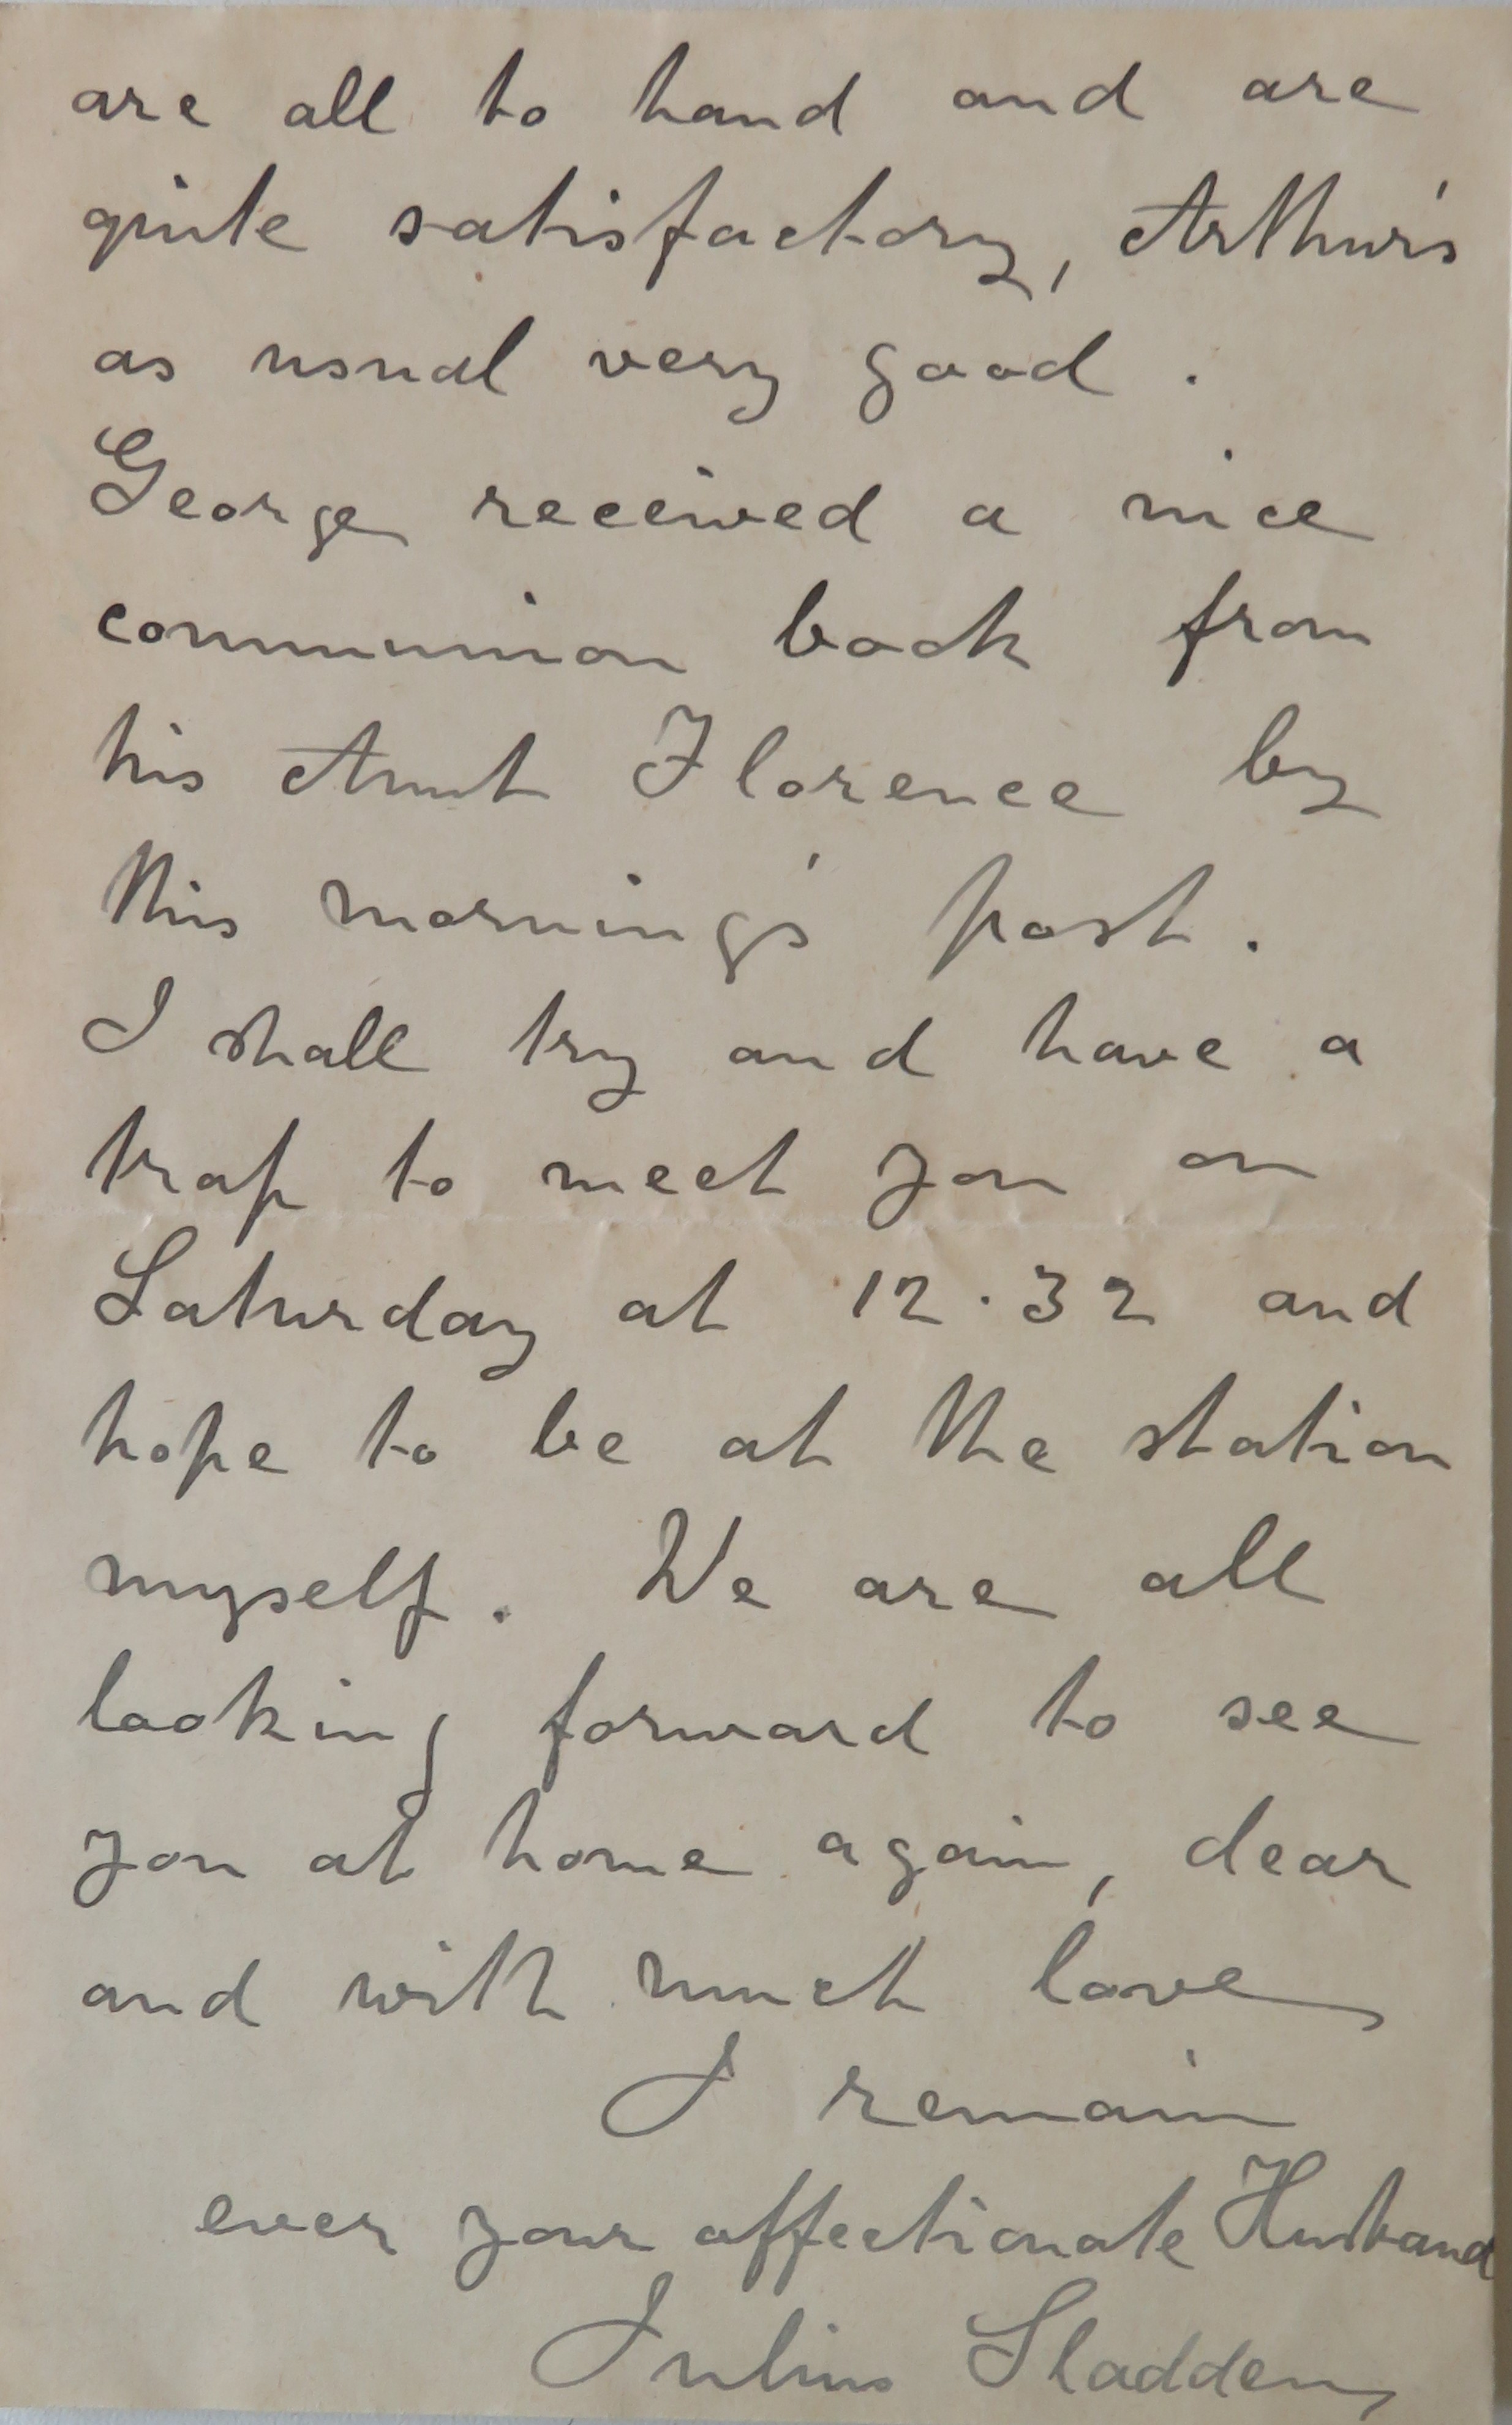 are all to hand and are
quite satisfactory, Arthur's
as usual very good.
George received a nice
communion book from
his Aunt Florence by
this morning's post.
I shall try and have a
trap to meet you on
Saturday at 12.32 and
hope to be at the station
myself. We are all
looking forward to see
you at home again, dear
and with much love
I remain
ever your affectionate Husband
Julius Sladden